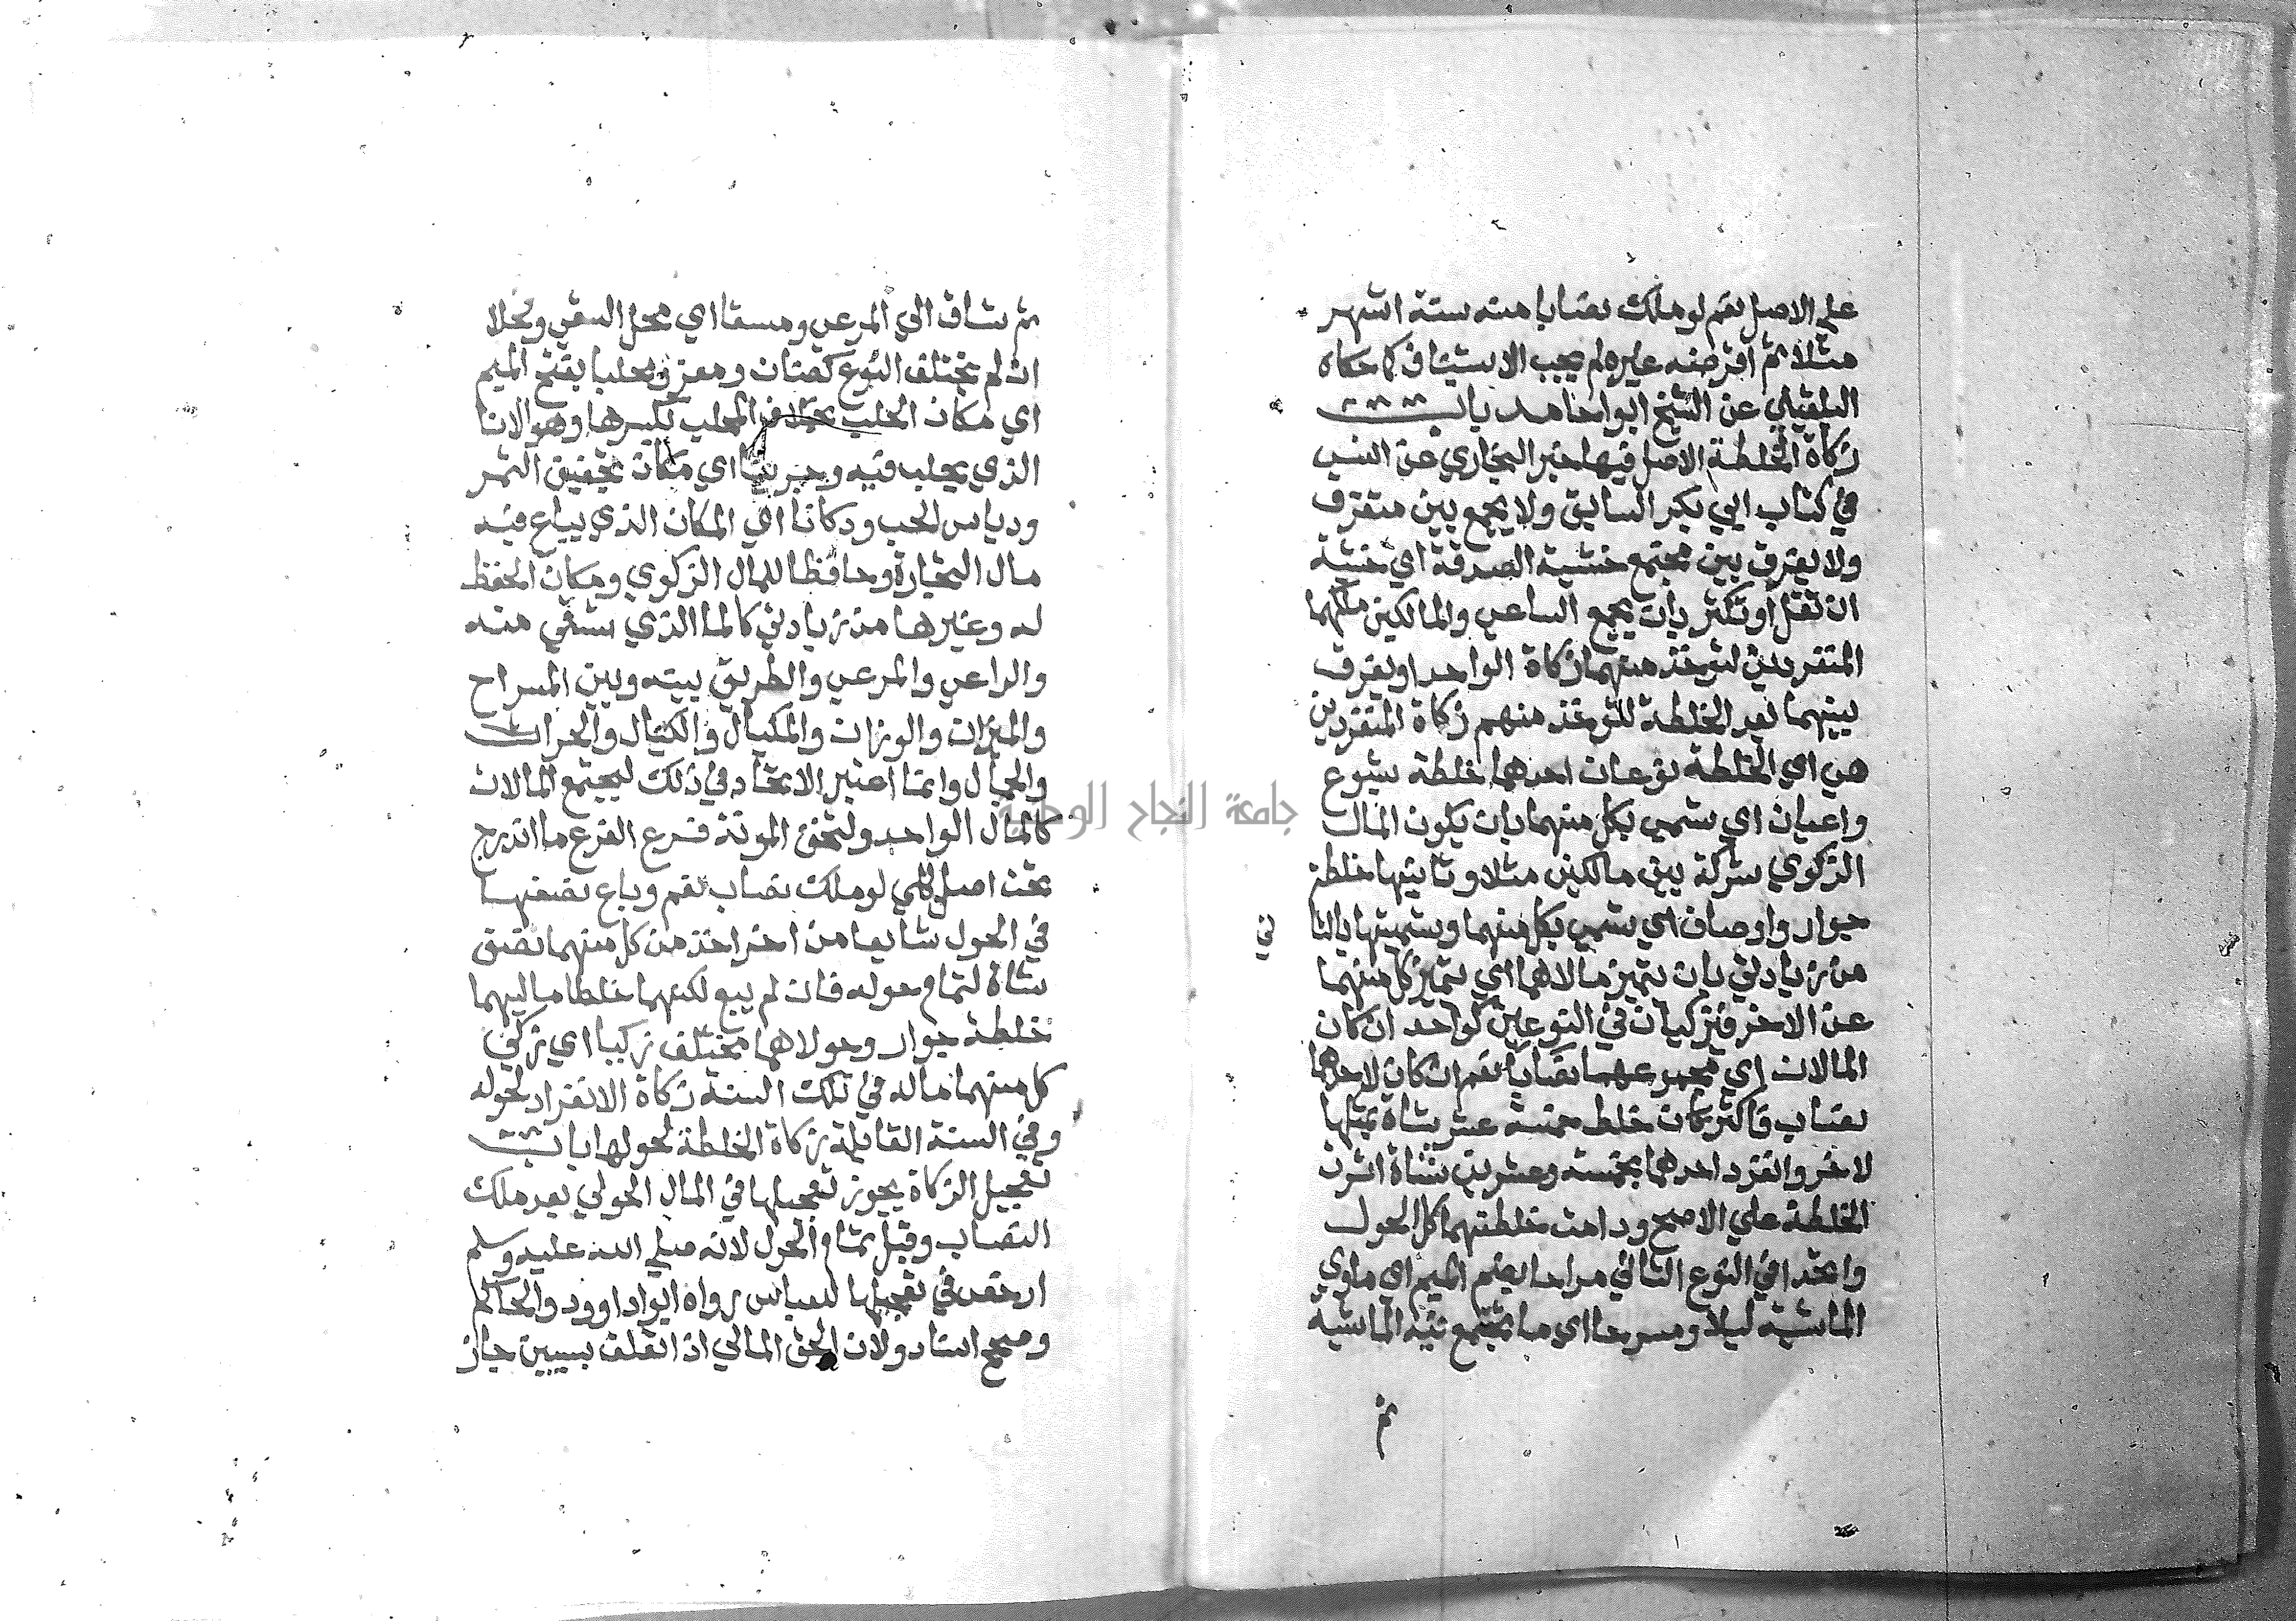 علي الاصل نعم لو ملك نصابا منه ستة اشهر
مثلا ثم اقرضه غيره لم يجب الاستيناف كما حكاه
البلقيني عن الشيخ ابوا حامد باب
زكاة الخلطة الاصل فيها خبر البخاري عن انس
في كتاب ابي بكر السابق ولا يجمع بين متفرق
ولا يفرق بين مجتمع خشية الصدقة اي خشية
ان تقل او تكثر بان يجمع الساعي والمالكين ملكهما
المنفردين لتوخذ منهما زكاة الواحد او يفرق
بينهما بعد الخلطة لتوخذ منهم زكاة المنفردين
هي اي الخلطة نوعان احدهما خلطة شيوع
واعيان اي يسمي بكل منهما بان يكون المال
الزكوي شركة بين مالكين مثلا وثانيها خلطة
جوار واوصاف اي يسمي بكل منهما وتسميتها بالثا
ني
من زيادتي بان يتميز مالاهما اي يتميز كل منهما
عن الاخر فيزكيان في النوعين كواحد ان كان
المالان اي مجموعهما نصابا نعم ان كان لاحدهما
نصاب فاكثر كان خلط خمسة عشر شاة بمثلها
لاخر وانفرد احدهما بخمسة وعشرين شاة اثرت
الخلطة علي الاصح ودامت خلطتهما كل الحول
واتحدا في النوع الثاني مراحا بضم الميم اي ماوي
الماشية ليلا ومسرحا اي ما يجتمع فيه الماشية
ثم
ثم تساق الي المرعي ومسقا اي محل السقي وفحلا
ان لم يختلف النوع كضان ومعز ومحلبا بفتح الميم
اي مكان الحلب بخلاف المحلب بكسرها وهو الانا
الذي يحلب فيه وجرينا اي مكان تجفيف الثمر
ودياس الحب ودكانا اي المكان الذي يباع فيه
مال التجارة وحافظا للمال الزكوي ومكان الحفظ
له وغيرها من زيادتي كالما الذي تسقي منه
والراعي والمرعي والطريق بينه وبين المسراح
والميزان والوزان والمكيال والكيال والحراث
والحمال وانما اعتبر الاتحاد في ذلك ليجتمع المالان
كالمال الواحد ولتخف المونة فرع الفرع ما اندرج
تحت اصل كلي لو ملك نصاب نعم وباع نصفها
في الحول شايعا من اخر اخذ من كل منهما نصف
شاة لتمام حوله فان لم يبع لكنهما خلطا ماليهما
خلطة جوار وحولاهما مختلف زكيا اي زكي
كل منهما ماله في تلك السنة زكاة الانفراد لحوله
وفي السنة القابلة زكاة الخلطة لحولها باب
تعجيل الزكاة يجوز تعجيلها في المال الحولي بعد ملك
النصاب وقبل تمام الحول لانه صلي الله عليه وسلم
ارخص في تعجيلها للعباس رواه ابوا داوود والحاكم
وصحح اسناده ولان الحق المالي اذا تعلق بسببين جاز
جامعة النجاح الوطنية